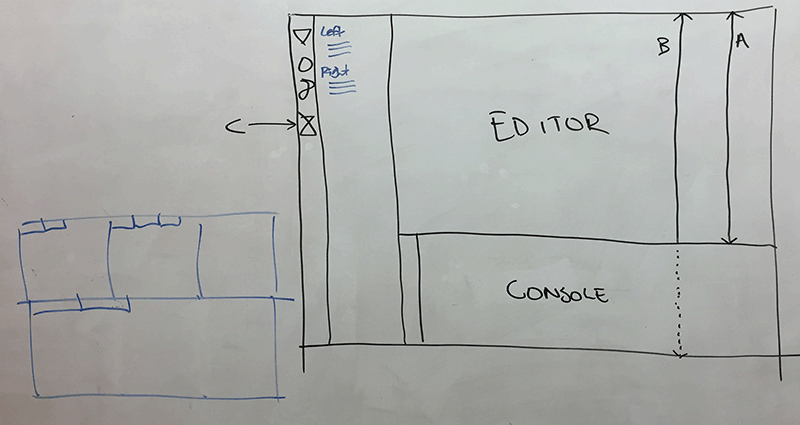 Left
Right
B
A
C
EDITOR
CONSOLE